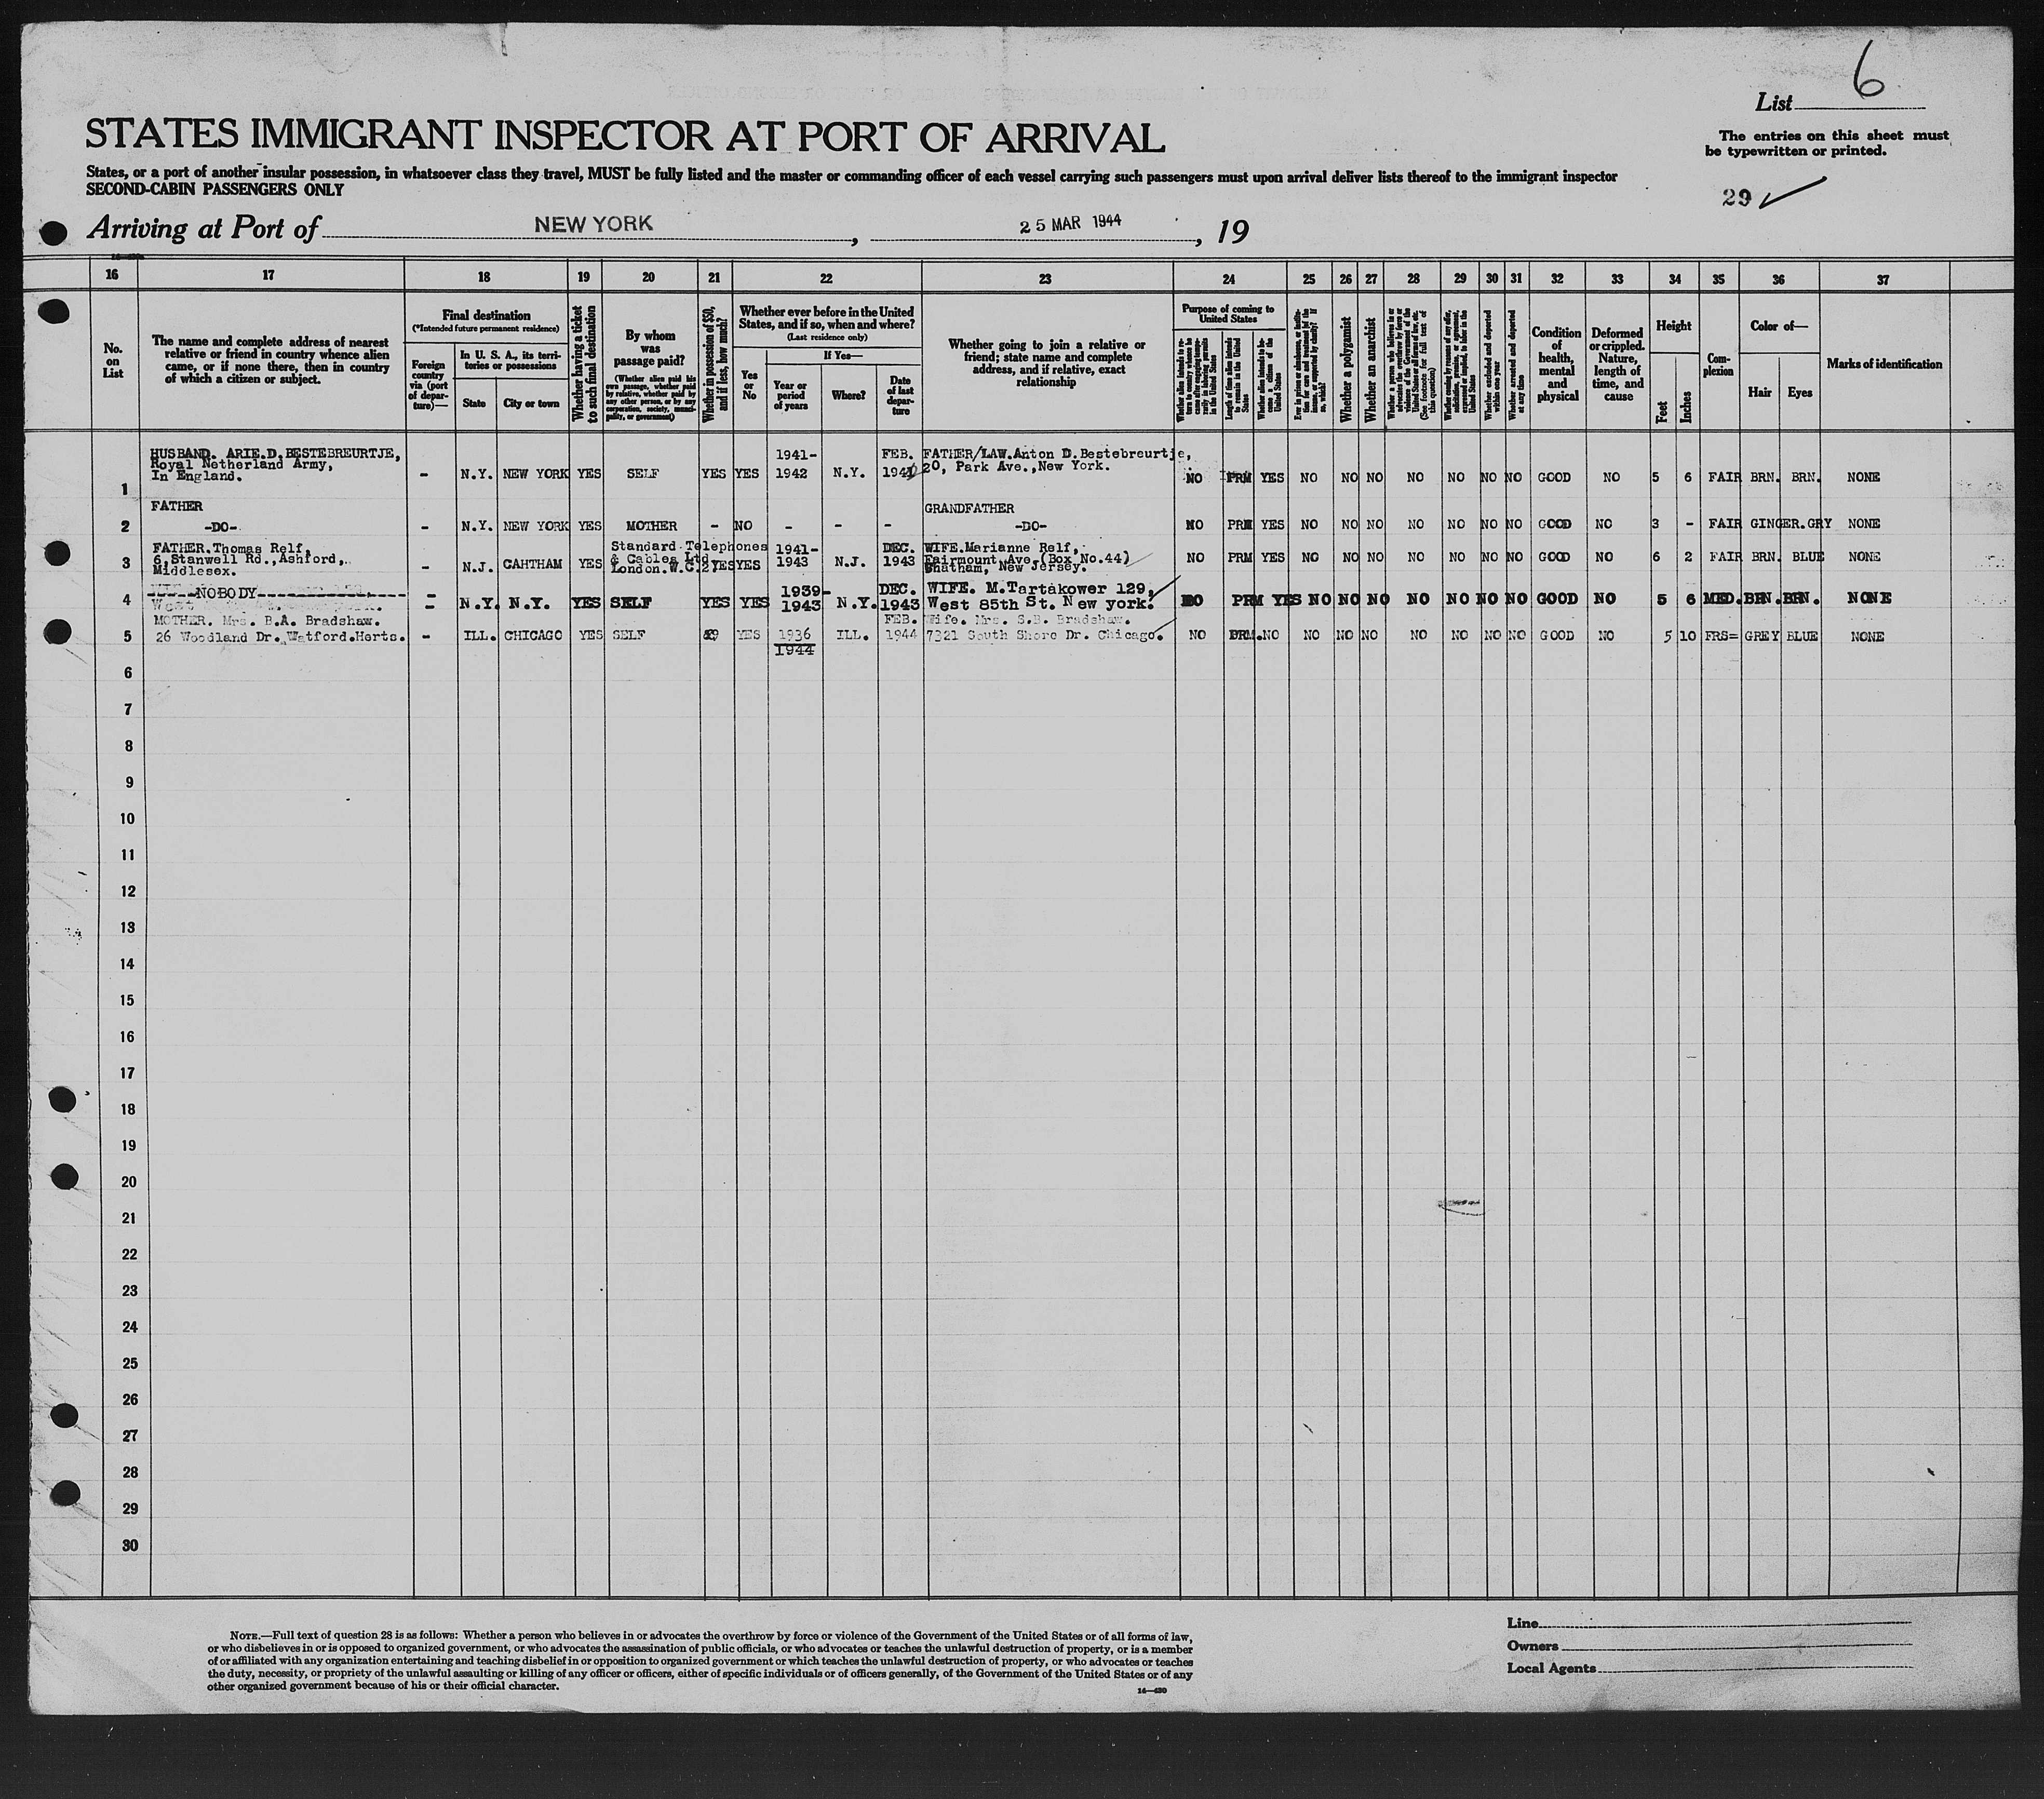 6
List
STATES IMMIGRANT INSPECTOR AT PORT OF ARRIVAL
The entries on this sheet must
be typewritten or printed.
States, or a port of another insular possession, in whatsoever class they travel, MUST be fully listed and the master or commanding officer of each vessel carrying such passengers must upon arrival deliver lists thereof to the immigrant inspector
SECOND-CABIN PASSENGERS ONLY
29
Arriving at Port of NEW YORK, 25 MAR 1944, 19
16 17 18 19 20 21 22 23 24 25 26 27 28 29 30 31 32 33 34 35 36 37
No. on List
The name and complete address of nearest
relative or friend in country whence alien
came, or if none there, then in country
of which a citizen or subject.
Final destination
(*Intended future permanent residence)
Foreign country via (port of departure)—
In U. S. A., its territories or possessions
State
City or town
Whether having a ticket to such final destination
By whom was passage paid?
(Whether alien paid his own passage, whether paid by relative, whether paid by any other person, or by any corporation, society, municipality, or government)
Whether in possession of $50, and if less, how much?
Whether ever before in the United
States, and if so, when and where?
(Last residence only)
Yes or No
If Yes—
Year or period of years
Where?
Date of last departure
Whether going to join a relative or
friend; state name and complete
address, and if relative, exact
relationship
Purpose of coming to United States
Length of time alien intends to remain in the United States
Whether alien intends to become a citizen of the United States
Whether a polygamist
Whether an anarchist
Whether excluded and deported within one year
Whether arrested and deported at any time
Condition of health, mental and physical
Deformed or crippled. Nature, length of time, and cause
Height
Feet
Inches
Complexion
Color of—
Hair
Eyes
Marks of identification
HUSBAND. ARIE.D.BESTEBREURTJE, 1941- FEB. FATHER/LAW.Anton D.Bestebreurtje,
Royal Netherland Army, - N.Y. NEW YORK YES SELF YES YES 1942 N.Y. 20, Park Ave.,New York.
In England. NO PRM YES NO NO NO NO NO NO NO GOOD NO 5 6 FAIR BRN. BRN. NONE
1
FATHER GRANDFATHER
2 -DO- - N.Y. NEW YORK YES MOTHER - NO - - - -DO- NO PRM YES NO NO NO NO NO NO NO GOOD NO 3 - FAIR GINGER.GRY NONE
FATHER.Thomas Relf, Standard Telephones 1941- DEC. WIFE.Marianne Relf,
6,Stanwell Rd.,Ashford, & Cables Ltd. 1943 N.J. 1943 Fairmount Ave.(Box No.44) NO PRM YES NO NO NO NO NO NO NO GOOD NO 6 2 FAIR BRN. BLUE NONE
3 Middlesex. - N.J. CAHTHAM YES London.W.C.2 YES YES Chatham, New Jersey.
NOBODY 1939- DEC. WIFE. M.Tartakower 129,
4 - N.Y. N.Y. YES SELF YES YES 1943 N.Y. 1943 West 85th St. New york. NO PRM YES NO NO NO NO NO NO NO GOOD NO 5 6 MED. BRN. BRN. NONE
MOTHER. Mrs. B.A. Bradshaw. FEB. Wife. Mrs. S.B. Bradshaw.
5 26 Woodland Dr. Watford.Herts. - ILL. CHICAGO YES SELF YES 1936 ILL. 1944 7321 South Shore Dr. Chicago. NO PRM. NO NO NO NO NO NO NO NO GOOD NO 5 10 FRS= GREY BLUE NONE
1944
6
7
8
9
10
11
12
13
14
15
16
17
18
19
20
21
22
23
24
25
26
27
28
29
30
NOTE.—Full text of question 28 is as follows: Whether a person who believes in or advocates the overthrow by force or violence of the Government of the United States or of all forms of law,
or who disbelieves in or is opposed to organized government, or who advocates the assassination of public officials, or who advocates or teaches the unlawful destruction of property, or is a member
of or affiliated with any organization entertaining and teaching disbelief in or opposition to organized government or which teaches the unlawful destruction of property, or who advocates or teaches
the duty, necessity, or propriety of the unlawful assaulting or killing of any officer or officers, either of specific individuals or of officers generally, of the Government of the United States or of any
other organized government because of his or their official character.
Line
Owners
Local Agents